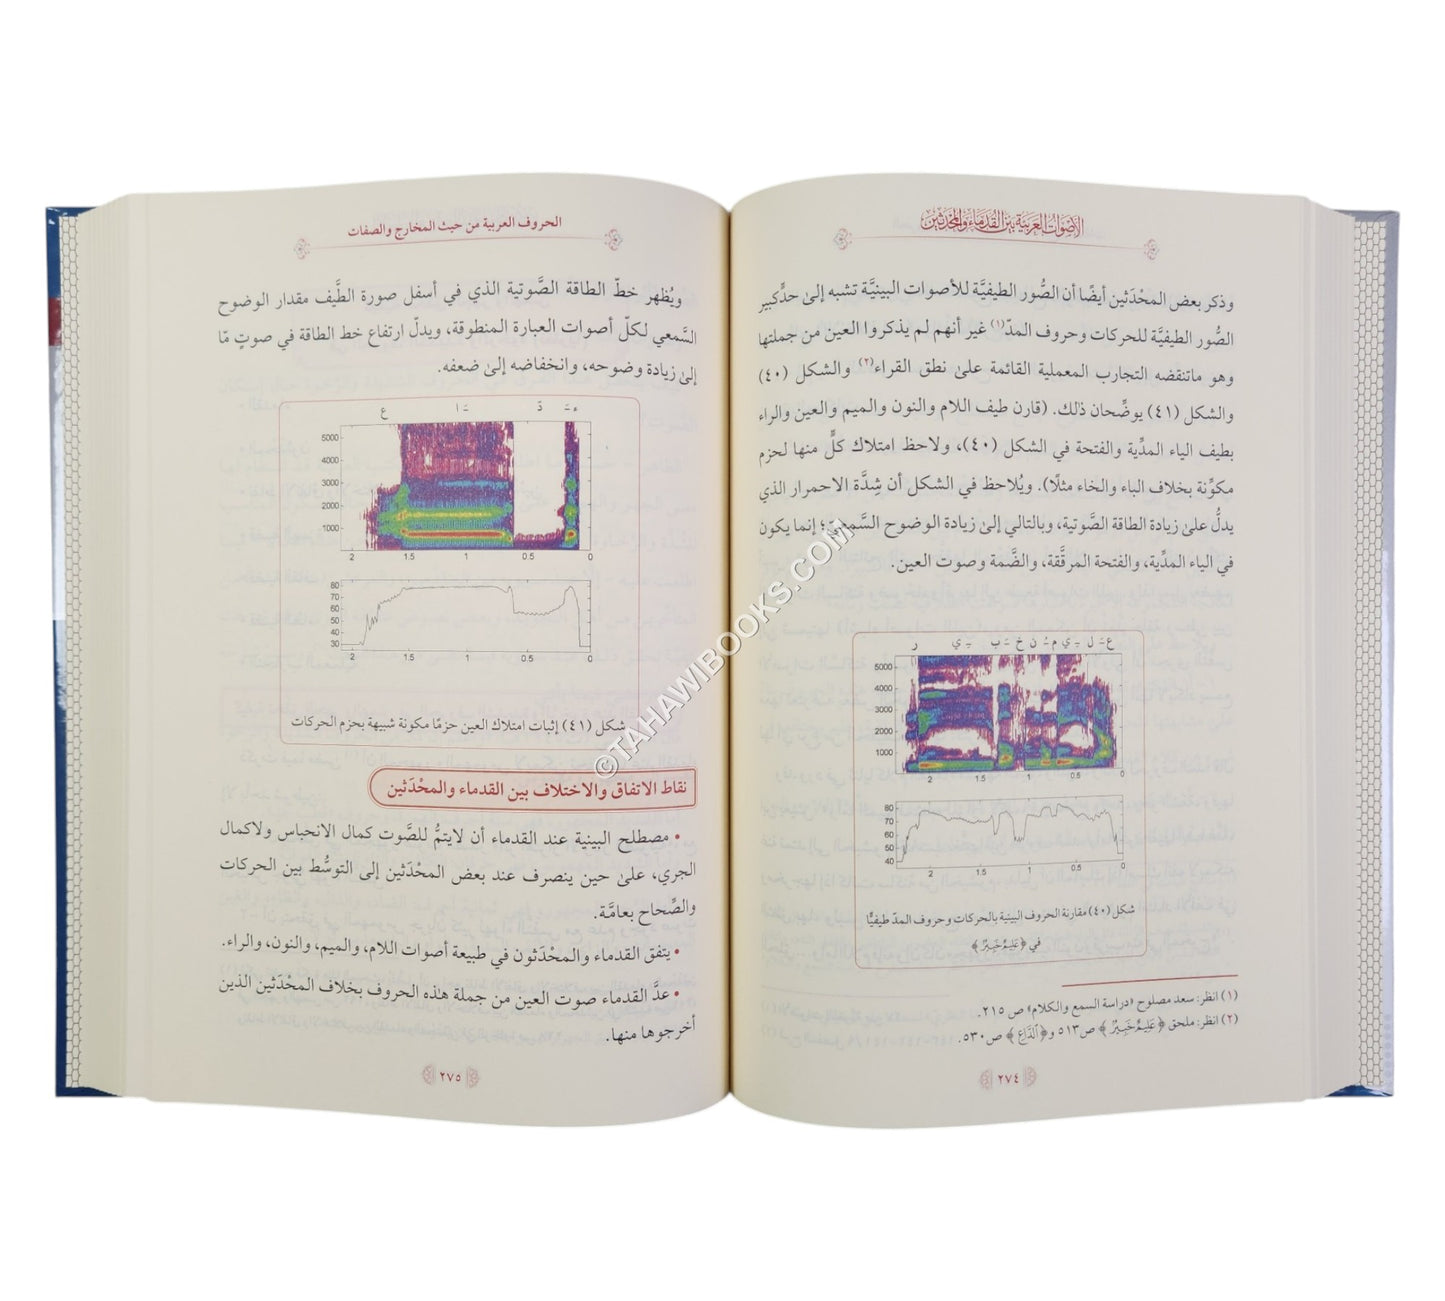 الأصوات العربية بين القدماء والمحدثين
وذكر بعض المحْدَثين أيضًا أن الصُّور الطيفيَّة للأصوات البينيَّة تشبه إلىٰ حدٍّكبير
الصُّور الطيفيَّة للحركات وحروف المدّ(١) غير أنهم لم يذكروا العين من جملتها
وهو ماتنقضه التجارب المعملية القائمة علىٰ نطق القراء(٢) والشكل (٤٠)
والشكل (٤١) يوضِّحان ذلك. (قارن طيف اللام والنون والميم والعين والراء
بطيف الياء المدِّية والفتحة في الشكل (٤٠)، ولاحظ امتلاك كلٍّ منها لحزم
مكوِّنة بخلاف الباء والخاء مثلًا). ويُلاحظ في الشكل أن شِدَّة الاحمرار الذي
يدلُّ علىٰ زيادة الطاقة الصَّوتية، وبالتالي إلىٰ زيادة الوضوح السَّمعي؛ إنما يكون
في الياء المدِّية، والفتحة المرقَّقة، والضَّمة وصوت العين.
ع ـَ ل ـِي م ـُ ن خ ـَ ب ـِي ر
5000
4000
3000
2000
1000
2 1.5 1 0.5 0
80
70
60
50
40
2 1.5 1 0.5 0
شكل (٤٠) مقارنة الحروف البينية بالحركات وحروف المدّ طيفيًّا
في ﴿عَلِيمٌ خَبِيرٌ﴾
(١) انظر: سعد مصلوح «دراسة السمع والكلام» ص ٢١٥.
(٢) انظر: ملحق ﴿عَلِيمٌ خَبِيرٌ﴾ ص ٥١٣ و﴿ٱلدَّاعِ﴾ ص ٥٣٠.
٢٧٤
الحروف العربية من حيث المخارج والصفات
ويُظهر خطّ الطاقة الصَّوتية الذي في أسفل صورة الطَّيف مقدار الوضوح
السَّمعي لكلّ أصوات العبارة المنطوقة، ويدلّ ارتفاع خط الطاقة في صوتٍ مّا
إلىٰ زيادة وضوحه، وانخفاضه إلىٰ ضعفه.
ء ـَ دّ ـَ ا ع
5000
4000
3000
2000
1000
2 1.5 1 0.5 0
80
70
60
50
40
30
2 1.5 1 0.5 0
شكل (٤١) إثبات امتلاك العين حزمًا مكونة شبيهة بحزم الحركات
نقاط الاتفاق والاختلاف بين القدماء والمحْدَثين
• مصطلح البينية عند القدماء أن لايتمُّ للصَّوت كمال الانحباس ولاكمال
الجري، علىٰ حين ينصرف عند بعض المحْدَثين إلى التوسُّط بين الحركات
والصِّحاح بعامَّة.
• يتفق القدماء والمحْدَثون في طبيعة أصوات اللام، والميم، والنون، والراء.
• عدَّ القدماء صوت العين من جملة هٰذه الحروف بخلاف المحْدَثين الذين
أخرجوها منها.
٢٧٥
©TAHAWIBOOKS.COM